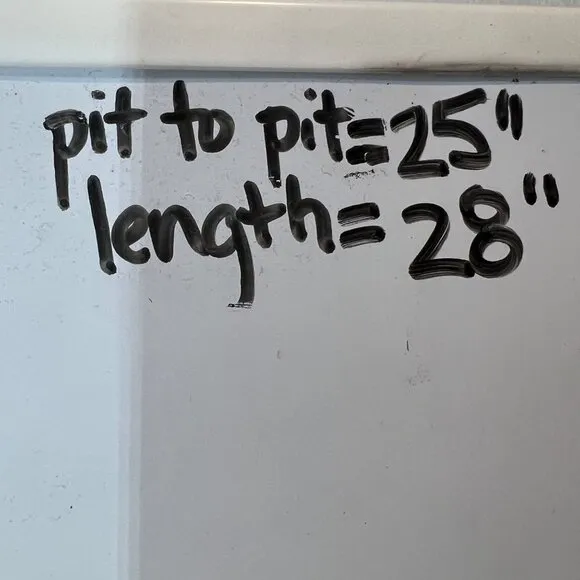 pit to pit=25"
length=28"